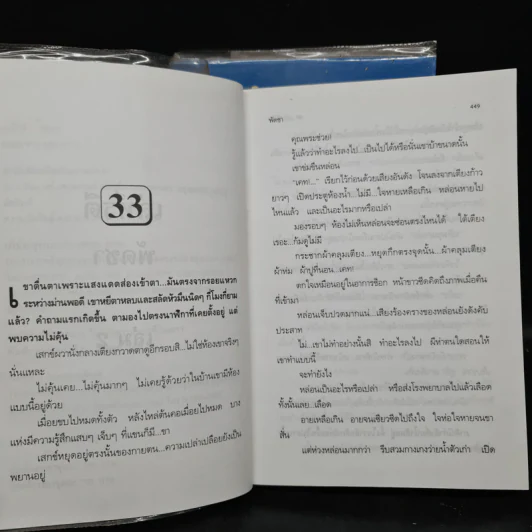 33
เขาตื่นตาเพราะแสงแดดส่องเข้าตา...มันตรงจากรอยแหวก
ระหว่างม่านพอดี เขาหยีตาหลบและสลัดหัวมึนนิดๆ กี่โมงกี่ยาม
แล้ว? คำถามแรกเกิดขึ้น ตามองไปตรงนาฬิกาที่เคยตั้งอยู่ แต่
พบความไม่คุ้น
เสกข์ผวานั่งกลางเตียงกวาดตาดูอีกรอบสิ...ไม่ใช่ห้องเขาจริงๆ
นั่นแหละ
ไม่คุ้นเคย...ไม่คุ้นมากๆ ไม่เคยรู้ด้วยว่าในบ้านเขามีห้อง
แบบนี้อยู่ด้วย
เมื่อยขบไปหมดทั้งตัว หลังไหล่ต้นคอเมื่อยไปหมด บาง
แห่งมีความรู้สึกแสบๆ เจ็บๆ ที่แขนก็มี...ขา
เสกข์หยุดอยู่ตรงนั้นของกายตน...ความเปล่าเปลือยยังเป็น
พยานอยู่
พัดชา
449
คุณพระช่วย!
รู้แล้วว่าทำอะไรลงไป...เป็นไปได้หรือนั่นเขาบ้าขนาดนั้น
เขาข่มขืนหล่อน
"เคท!..." เรียกไว้ก่อนด้วยเสียงอันดัง โจนลงจากเตียงก้าว
ยาวๆ เปิดประตูห้องน้ำ...ไม่มี...ใจหายเหลือเกิน หล่อนหายไป
ไหนแล้ว และเป็นอะไรมากหรือเปล่า
มองรอบๆ ห้องไม่เห็นหล่อนจะซ่อนตรงไหนได้ ใต้เตียง
เรอะ...ก้มดูไม่มี
กระชากผ้าคลุมเตียง...หยุดกึกตรงจุดนั้น...ผ้าคลุมเตียง
ผ้าห่ม ผ้าปูที่นอน...เคท!
ตกใจเหมือนอยู่ในอาการช็อก หน้าขาวซีดคิดถึงภาพเมื่อคืน
ที่เข้ามา
หล่อนเจ็บปวดมากแน่...เสียงร้องครางของหล่อนยังดังคับ
ประสาท
ไม่...เขาไม่ทำอย่างนั้นสิ ทำอะไรลงไป ผีห่าตนใดสอนให้
เขาทำแบบนี้
จะทำยังไง
หล่อนเป็นอะไรหรือเปล่า หรือส่งโรงพยาบาลไปแล้วเลือด
ทั้งนั้นเลย...เลือด
อายเหลือเกิน อายจนเขียวซีดไปถึงใจ ใจห่อใจหายจนขา
สั่น
แต่ห่วงหล่อนมากกว่า รีบสวมกางเกงว่ายน้ำตัวเก่า เปิด